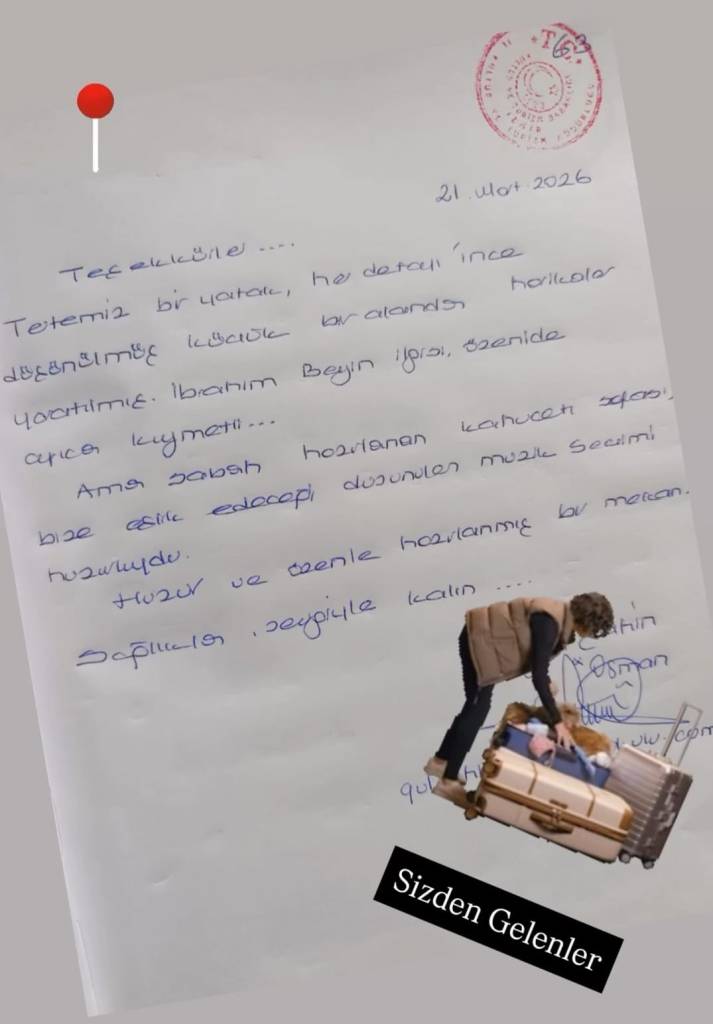 T.C.
21 Mart 2026
Teşekkürler ....
Tertemiz bir yatak, her detayı ince
düşünülmüş küçük bir alanda harikalar
yaratılmış. İbrahim Beyin ilgisi, özenide
ayrıca kıymetli...
Ama sabah hazırlanan kahvaltı sofrası,
bize eşlik edeceği düşünülen müzik seçimi
huzurluydu.
Huzur ve özenle hazırlanmış bir mekan.
Sağlıkla, sevgiyle kalın ....
Osman
Sizden Gelenler